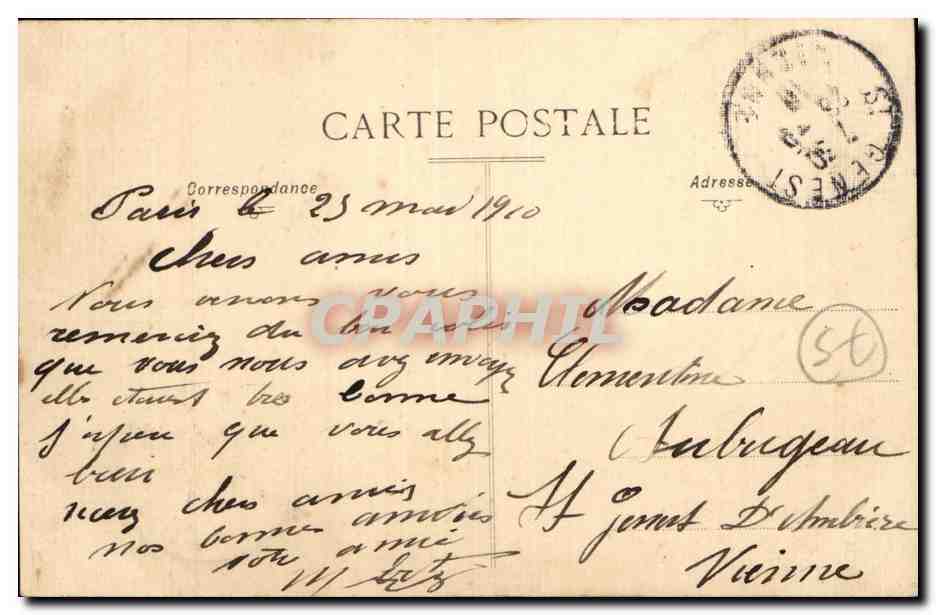 CARTE POSTALE
Correspondance
Adresse
ST GENEST
VIENNE
Paris le 25 mai 1910
Chers amis
Nous venons vous
remerciez du bon colis
que vous nous avez envoyez
elle etaient tres bonne
J'espere que vous allez
bien
recevez chers amis
nos bonnes amitiés
votre amie
M
Madame
Clementine
Aubugeau
St Genest D'Ambière
Vienne
CPAPHIL